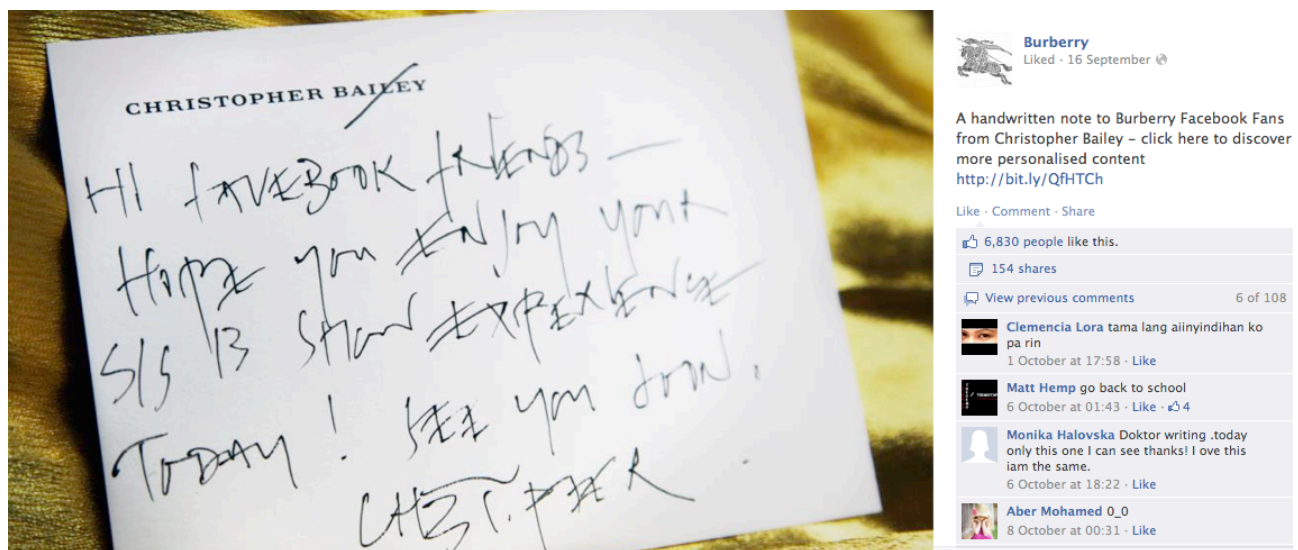 CHRISTOPHER BAILEY
HI FACEBOOK FRIENDS —
HOPE YOU ENJOY YOUR
S/S 13 SHOW EXPERIENCE
TODAY! SEE YOU SOON.
CHRISTOPHER
Burberry
Liked · 16 September
A handwritten note to Burberry Facebook Fans
from Christopher Bailey – click here to discover
more personalised content
http://bit.ly/QfHTCh
Like · Comment · Share
6,830 people like this.
154 shares
View previous comments 6 of 108
Clemencia Lora tama lang aiinyindihan ko
pa rin
1 October at 17:58 · Like
Matt Hemp go back to school
6 October at 01:43 · Like · 4
Monika Halovska Doktor writing .today
only this one I can see thanks! I ove this
iam the same.
6 October at 18:22 · Like
Aber Mohamed 0_0
8 October at 00:31 · Like